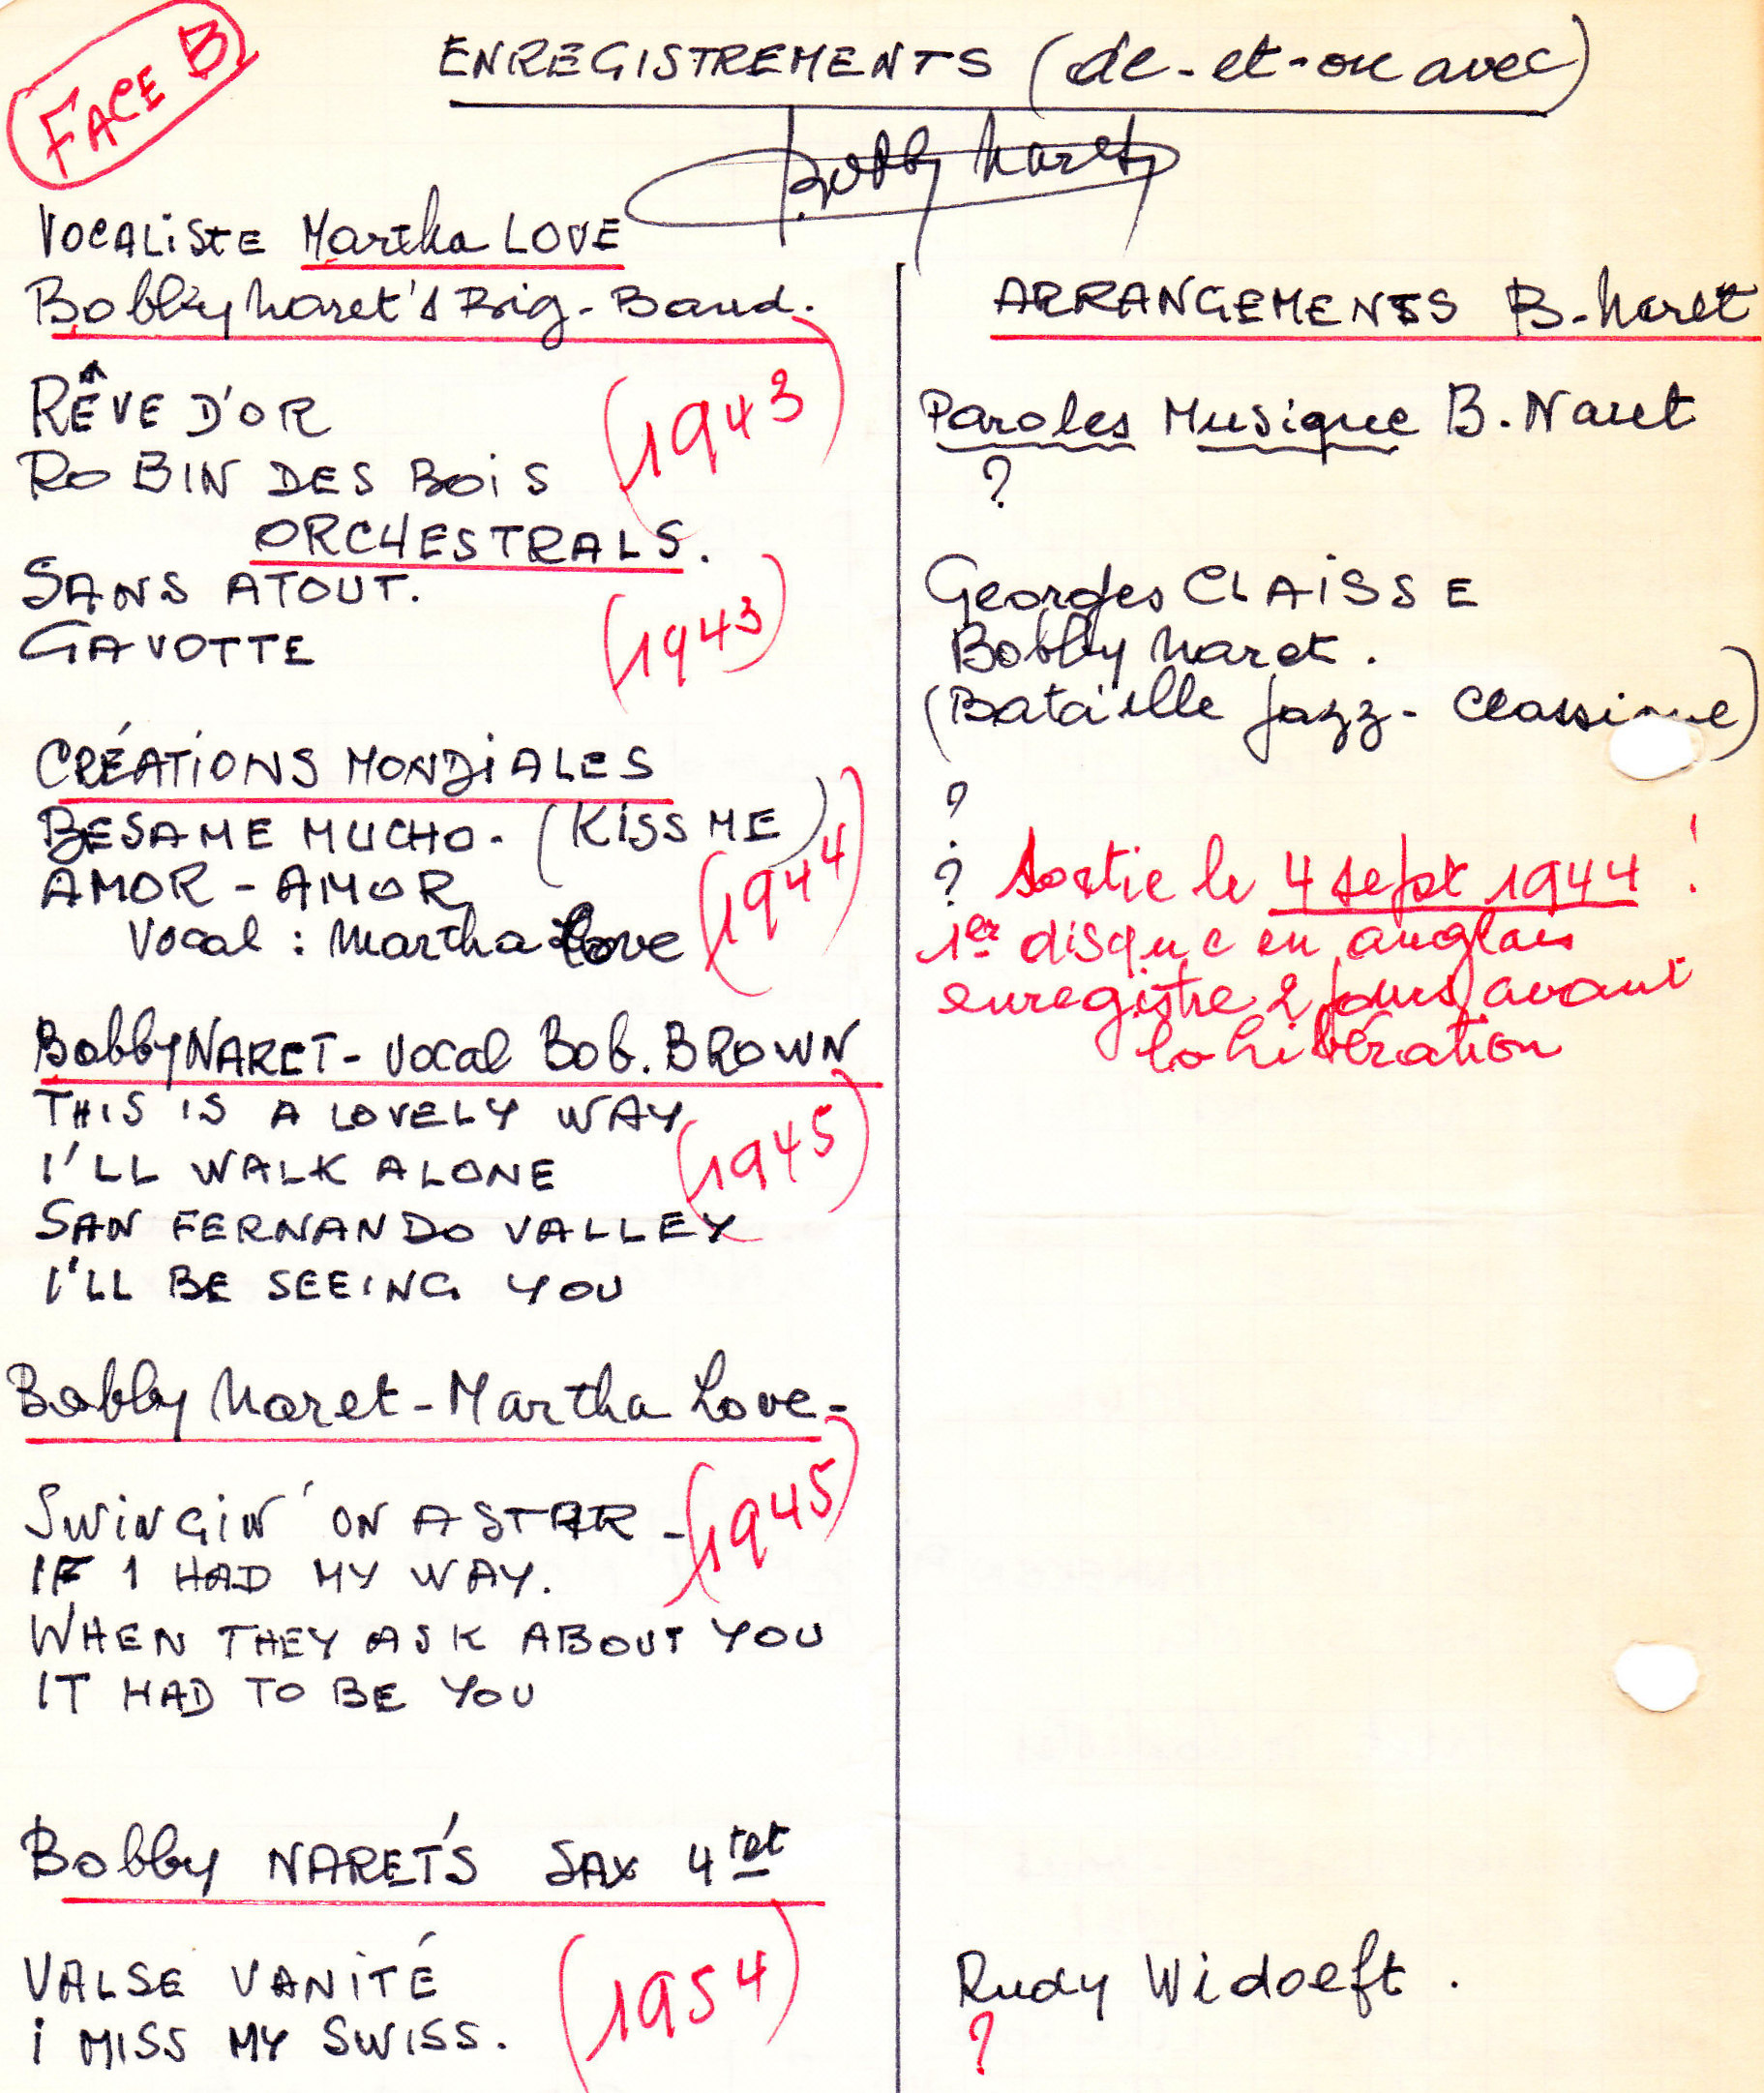 FACE B
ENREGISTREMENTS (de-et-ou avec)
Bobby Naret
VOCALISTE Martha LOVE
Bobby Naret's Big-Band.
RÊVE D'OR
(1943)
ROBIN DES BOIS
ORCHESTRALS.
SANS ATOUT.
GAVOTTE
(1943)
CRÉATIONS MONDIALES
BESAME MUCHO. (KISS ME)
AMOR-AMOR
(1944)
Vocal : Martha Love
Bobby NARET- Vocal Bob. BROWN
THIS IS A LOVELY WAY
(1945)
I'LL WALK ALONE
SAN FERNANDO VALLEY
I'LL BE SEEING YOU
Bobby Naret-Martha Love-
SWINGIN' ON A STAR -
(1945)
IF I HAD MY WAY.
WHEN THEY ASK ABOUT YOU
IT HAD TO BE YOU
Bobby NARET'S SAX 4tet
VALSE VANITÉ
(1954)
I MISS MY SWISS.
ARRANGEMENTS B-Naret
Paroles Musique B. Naret
?
Georges CLAISSE
Bobby Naret.
(Bataille jazz- classique)
?
? Sortie le 4 sept 1944 !
1er disque en anglais
enregistre 2 jours avant
la Libération
Rudy Widoeft.
?